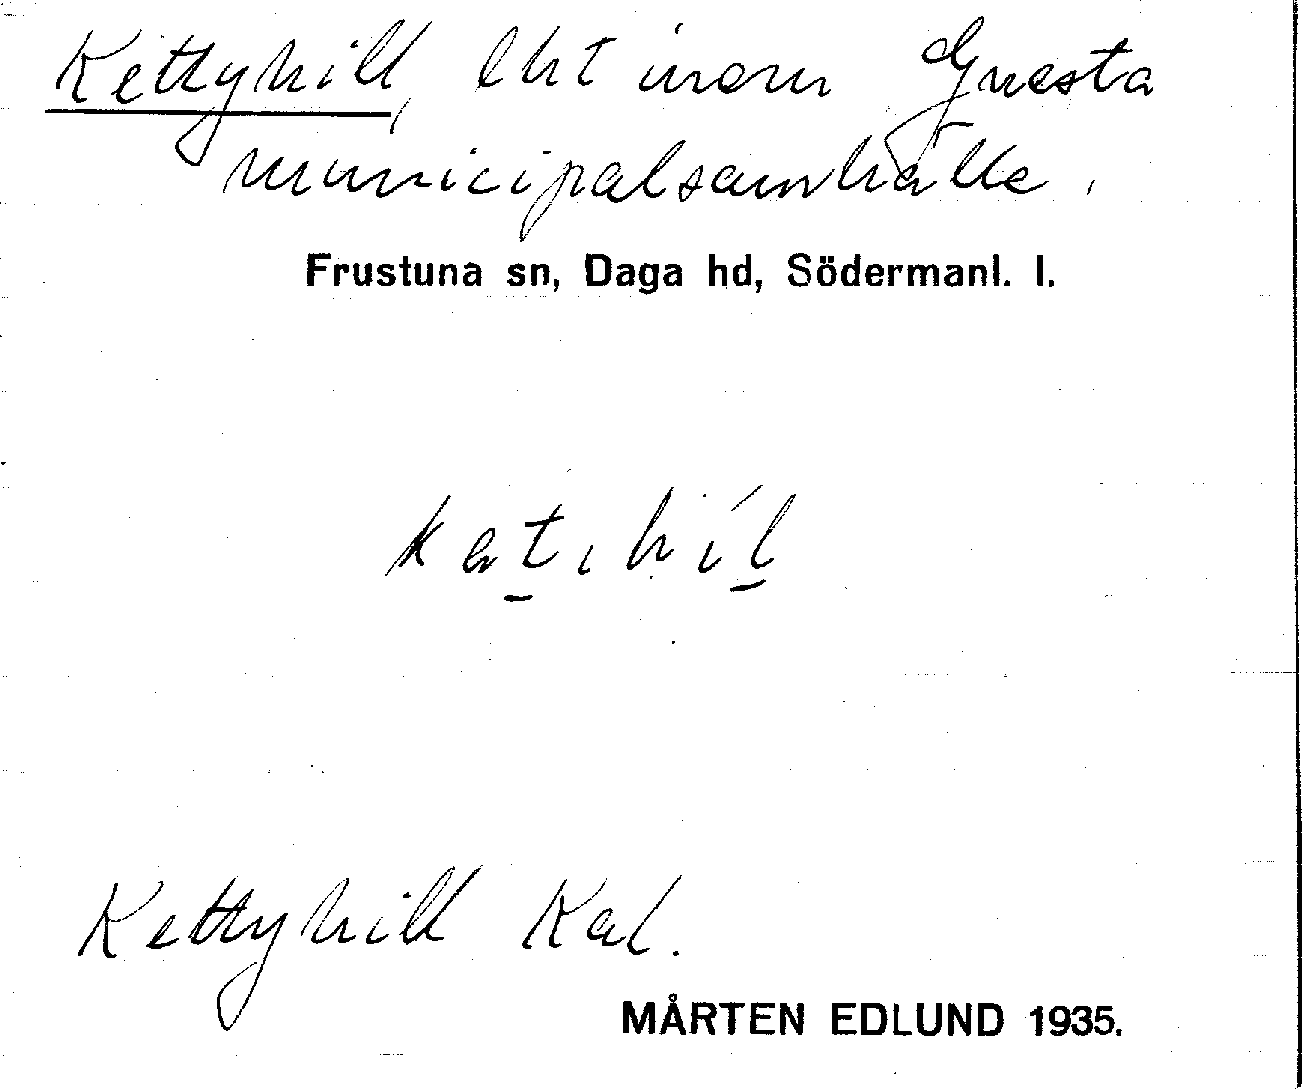 Kettyhill, lht inom Gnesta
municipalsamhälle.
Frustuna sn, Daga hd, Södermanl. l.
Kettyhill Kal.
MÅRTEN EDLUND 1935.